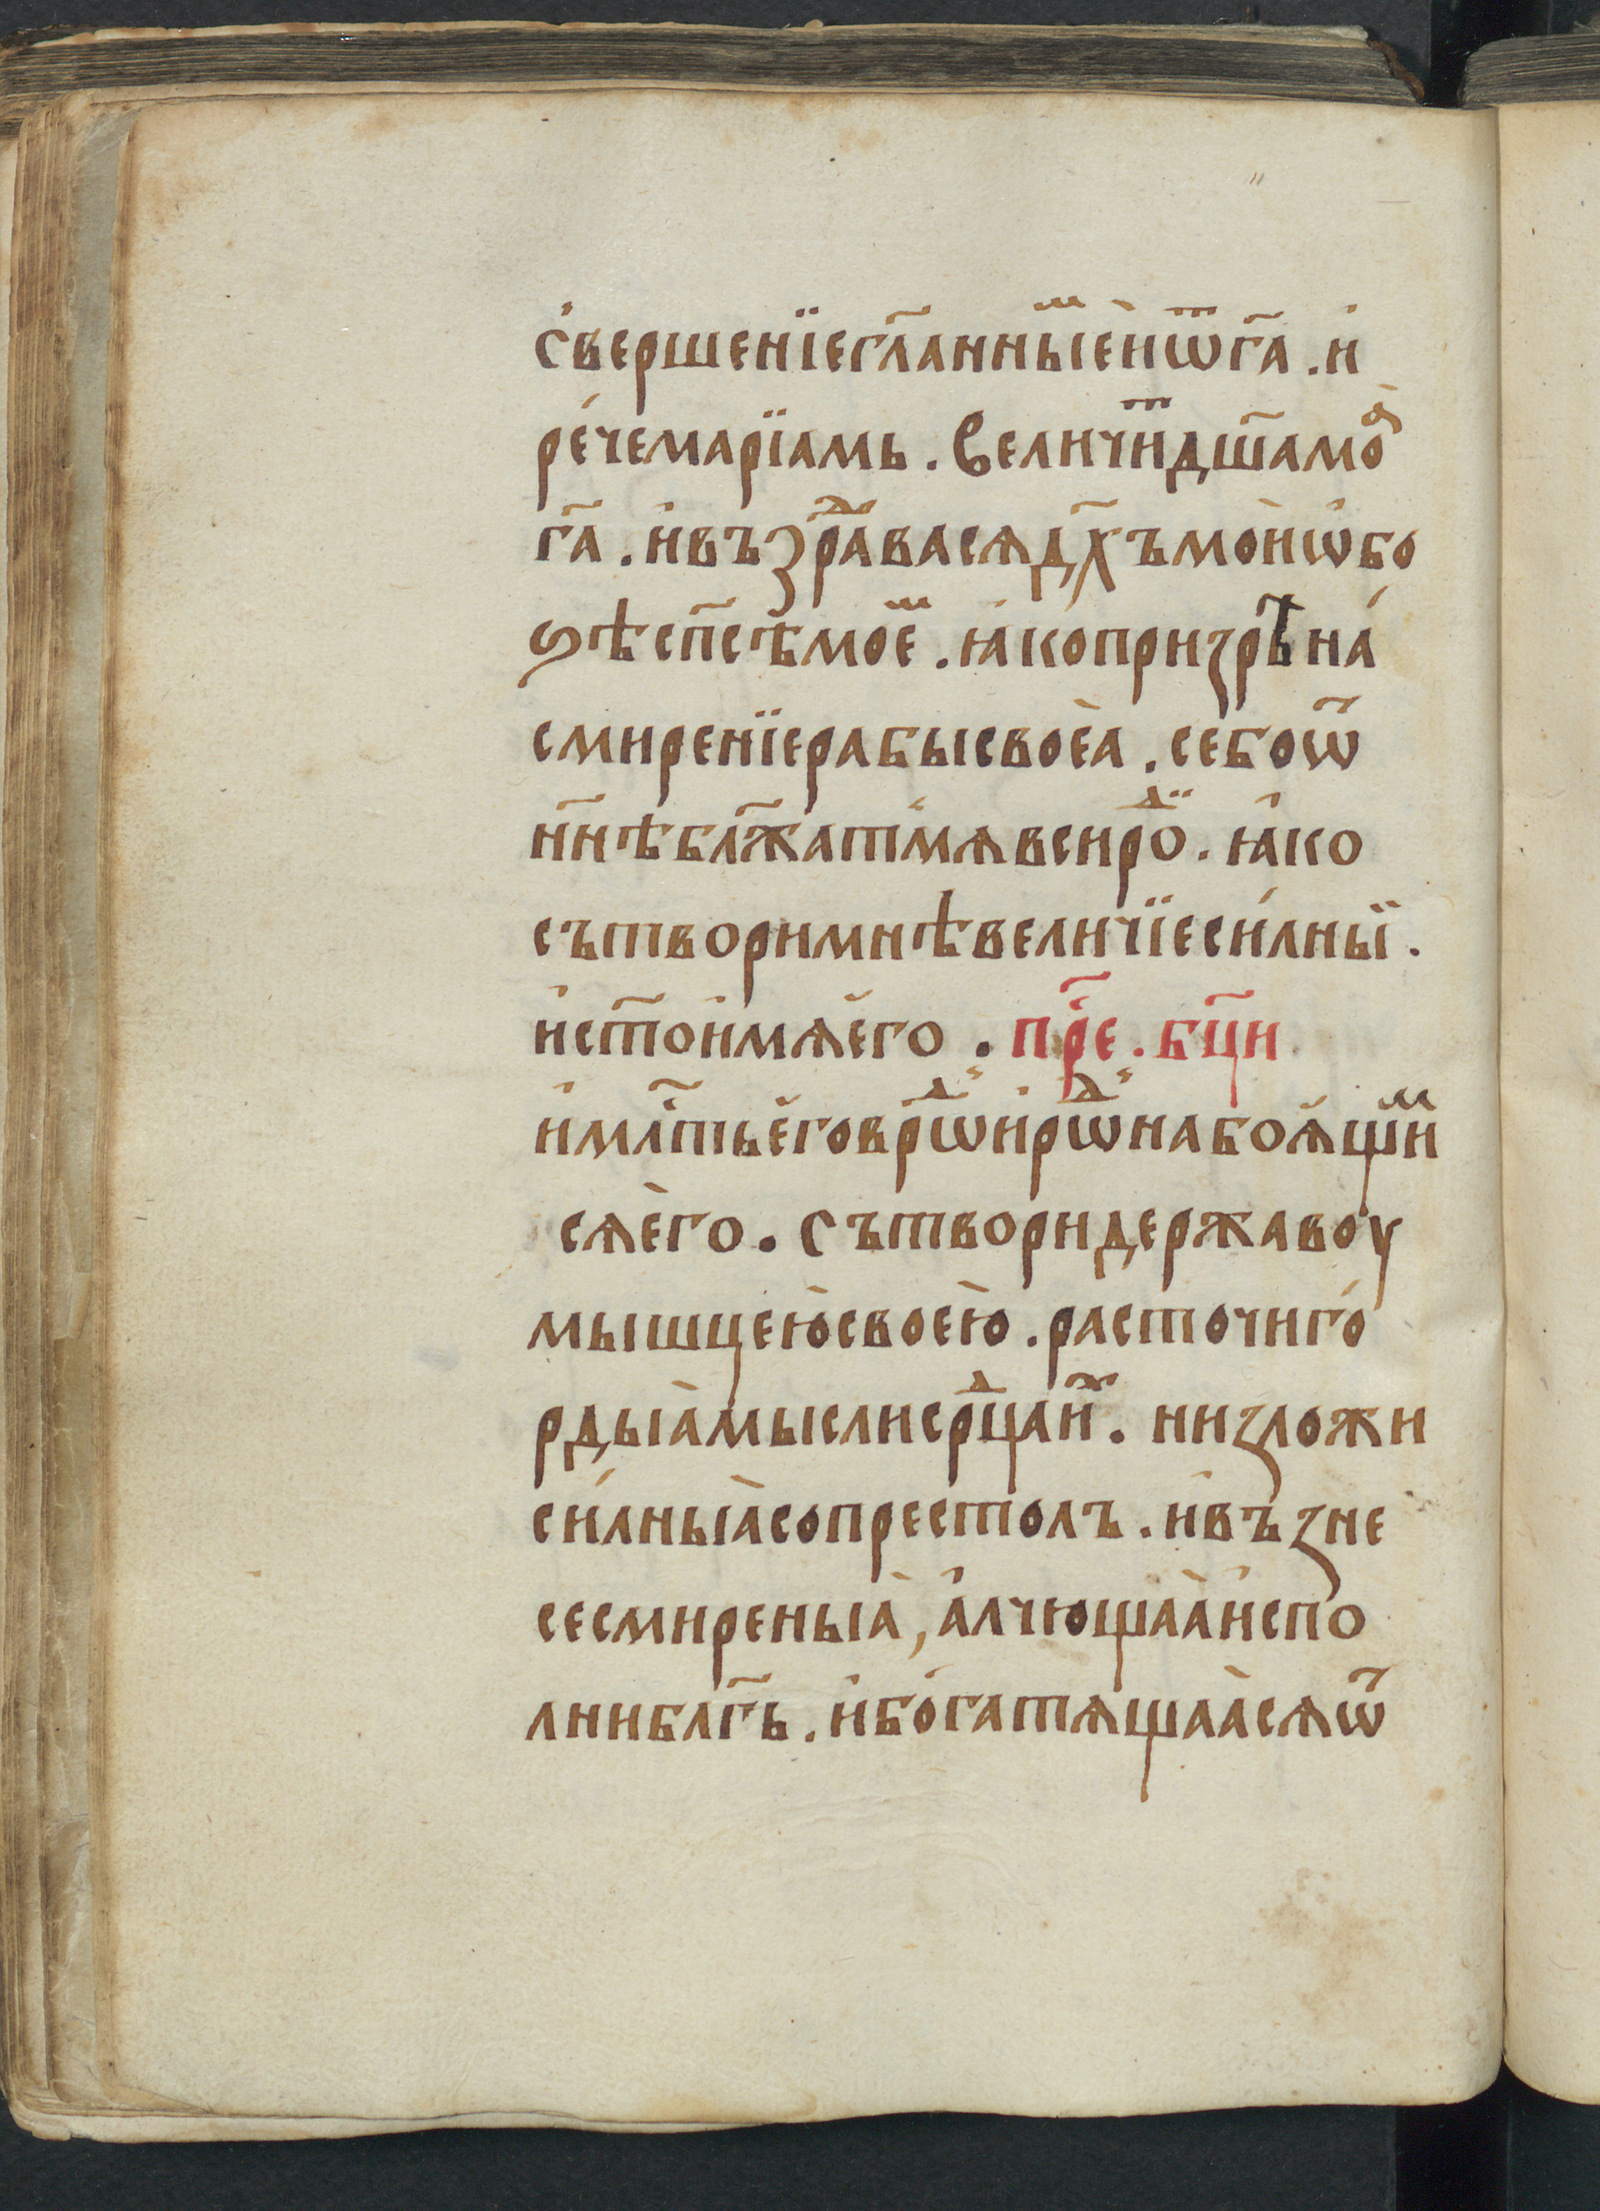 с҆вершенїегл҃анныⷨе҆ѝѿг҃а . и҆
ре́чемарїамь . Величиⷮдш҃амоꙗ̀
г҃а . и҆въꙁраⷣвасѧдх҃ъмо́и҆ѡ҆бо
ѕѣсп҃сѣмоеⷨ . ꙗ҆́копризрѣна́
смиренїерабысвоеа̀ . себоѿ
нн҃ѣблж҃атⸯмѧвсироⷣ . ꙗ҆́ко
сътворимнѣвеличїеси́лныї .
и҆ст҃ои҆мѧе҆го . пр҃е . бц҃и
и҆млⷭ҇тьѐговроⷣѡи҆рѡⷣнабоѧ҆щиⷨ
сѧе҆̀го . сътворидержавоу
мышцею̀своею̀ . расточиго́
рдыа̀мыслисрⷣцаиⷯ . низложи
си́лныа̀сопрестолъ . и҆въꙁне
сесмиреныа̀ , а҆́лчющаа̀и҆спо
лниблг҃ъ . и҆бо́гатѧщаа̀сѧѿ